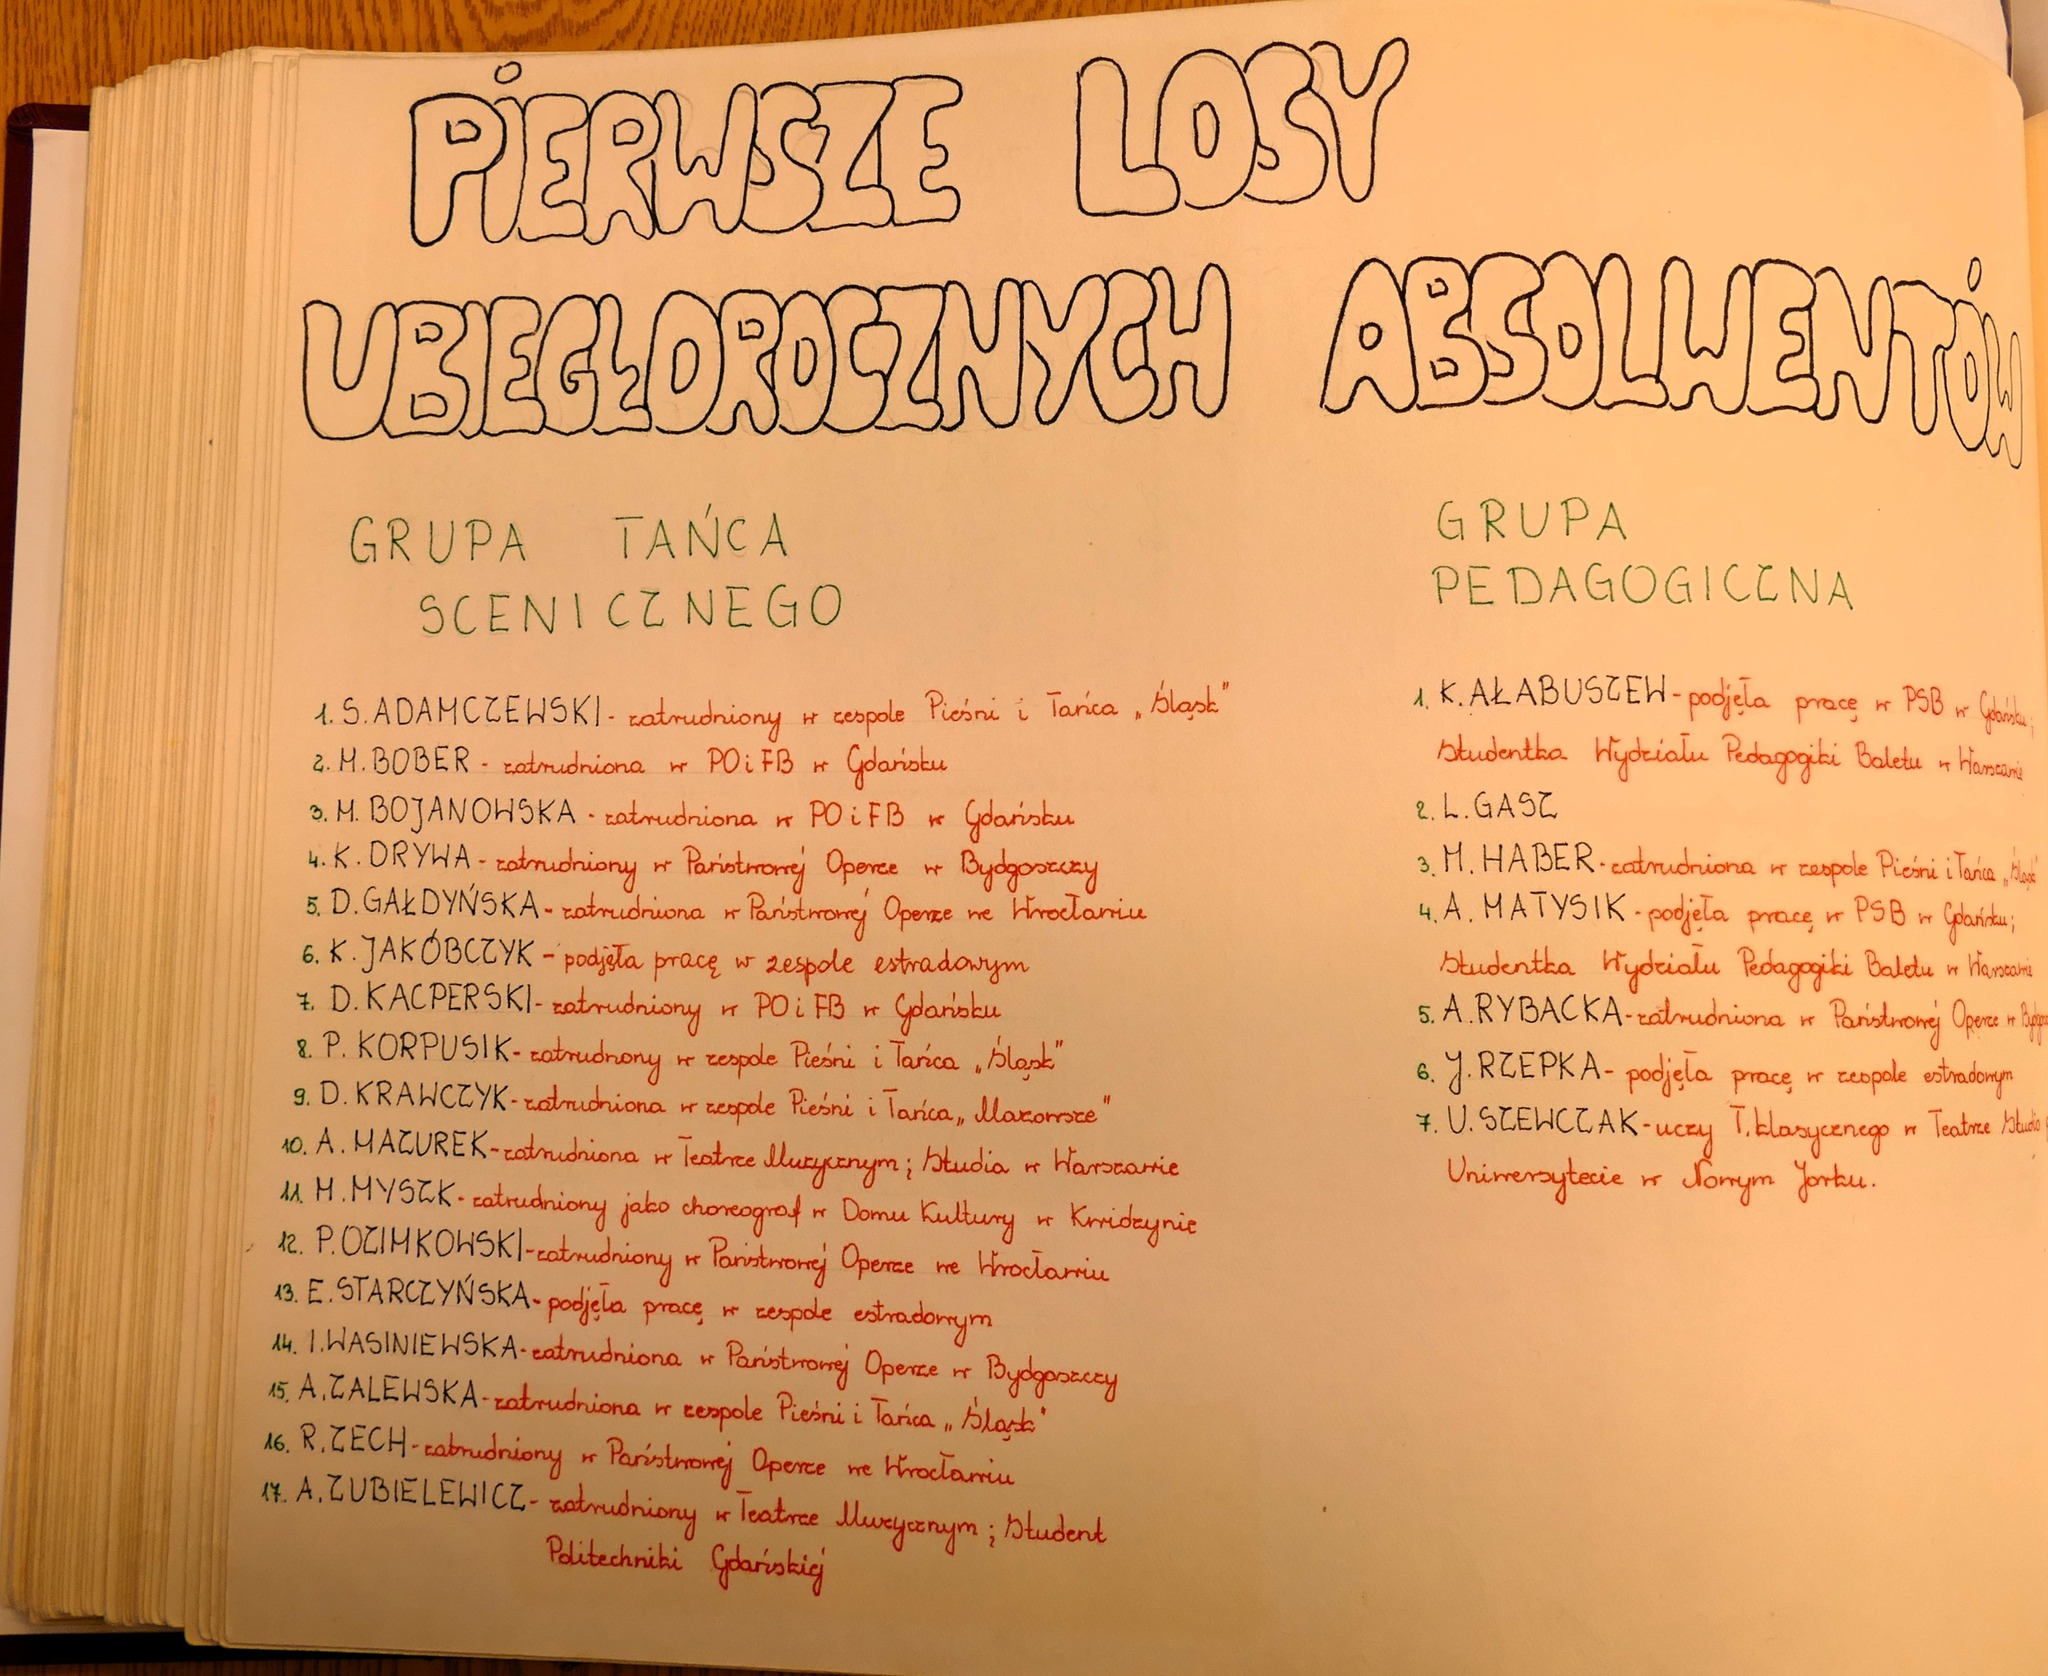 PIERWSZE LOSY
UBIEGŁOROCZNYCH ABSOLWENTÓW
GRUPA TAŃCA
SCENICZNEGO
1. S. ADAMCZEWSKI - zatrudniony w zespole Pieśni i Tańca „Śląsk"
2. M. BOBER - zatrudniona w PO i FB w Gdańsku
3. M. BOJANOWSKA - zatrudniona w PO i FB w Gdańsku
4. K. DRYWA - zatrudniony w Państwowej Operze w Bydgoszczy
5. D. GAŁDYŃSKA - zatrudniona w Państwowej Operze we Wrocławiu
6. K. JAKÓBCZYK - podjęła pracę w zespole estradowym
7. D. KACPERSKI - zatrudniony w PO i FB w Gdańsku
8. P. KORPUSIK - zatrudnony w zespole Pieśni i Tańca „Śląsk"
9. D. KRAWCZYK - zatrudniona w zespole Pieśni i Tańca „Mazowsze"
10. A. MAZUREK - zatrudniona w Teatrze Muzycznym; Studia w Warszawie
11. M. MYSZK - zatrudniony jako choreograf w Domu Kultury w Kwidzynie
12. P. OZIMKOWSKI - zatrudniony w Państwowej Operze we Wrocławiu
13. E. STARCZYŃSKA - podjęła pracę w zespole estradowym
14. I. WASINIEWSKA - zatrudniona w Państwowej Operze w Bydgoszczy
15. A. ZALEWSKA - zatrudniona w zespole Pieśni i Tańca „Śląsk"
16. R. ZECH - zatrudniony w Państwowej Operze we Wrocławiu
17. A. ZUBIELEWICZ - zatrudniony w Teatrze Muzycznym; Student
Politechniki Gdańskiej
GRUPA
PEDAGOGICZNA
1. K. AŁABUSZEW - podjęła pracę w PSB w Gdańsku;
Studentka Wydziału Pedagogiki Baletu w Warszawie
2. L. GASZ
3. M. HABER - zatrudniona w zespole Pieśni i Tańca „Śląsk"
4. A. MATYSIK - podjęła pracę w PSB w Gdańsku;
Studentka Wydziału Pedagogiki Baletu w Warszawie
5. A. RYBACKA - zatrudniona w Państwowej Operze w
6. J. RZEPKA - podjęła pracę w zespole estradowym
7. U. SZEWCZAK - uczy T. klasycznego w Teatrze Studio
Uniwersytecie w Nowym Jorku.